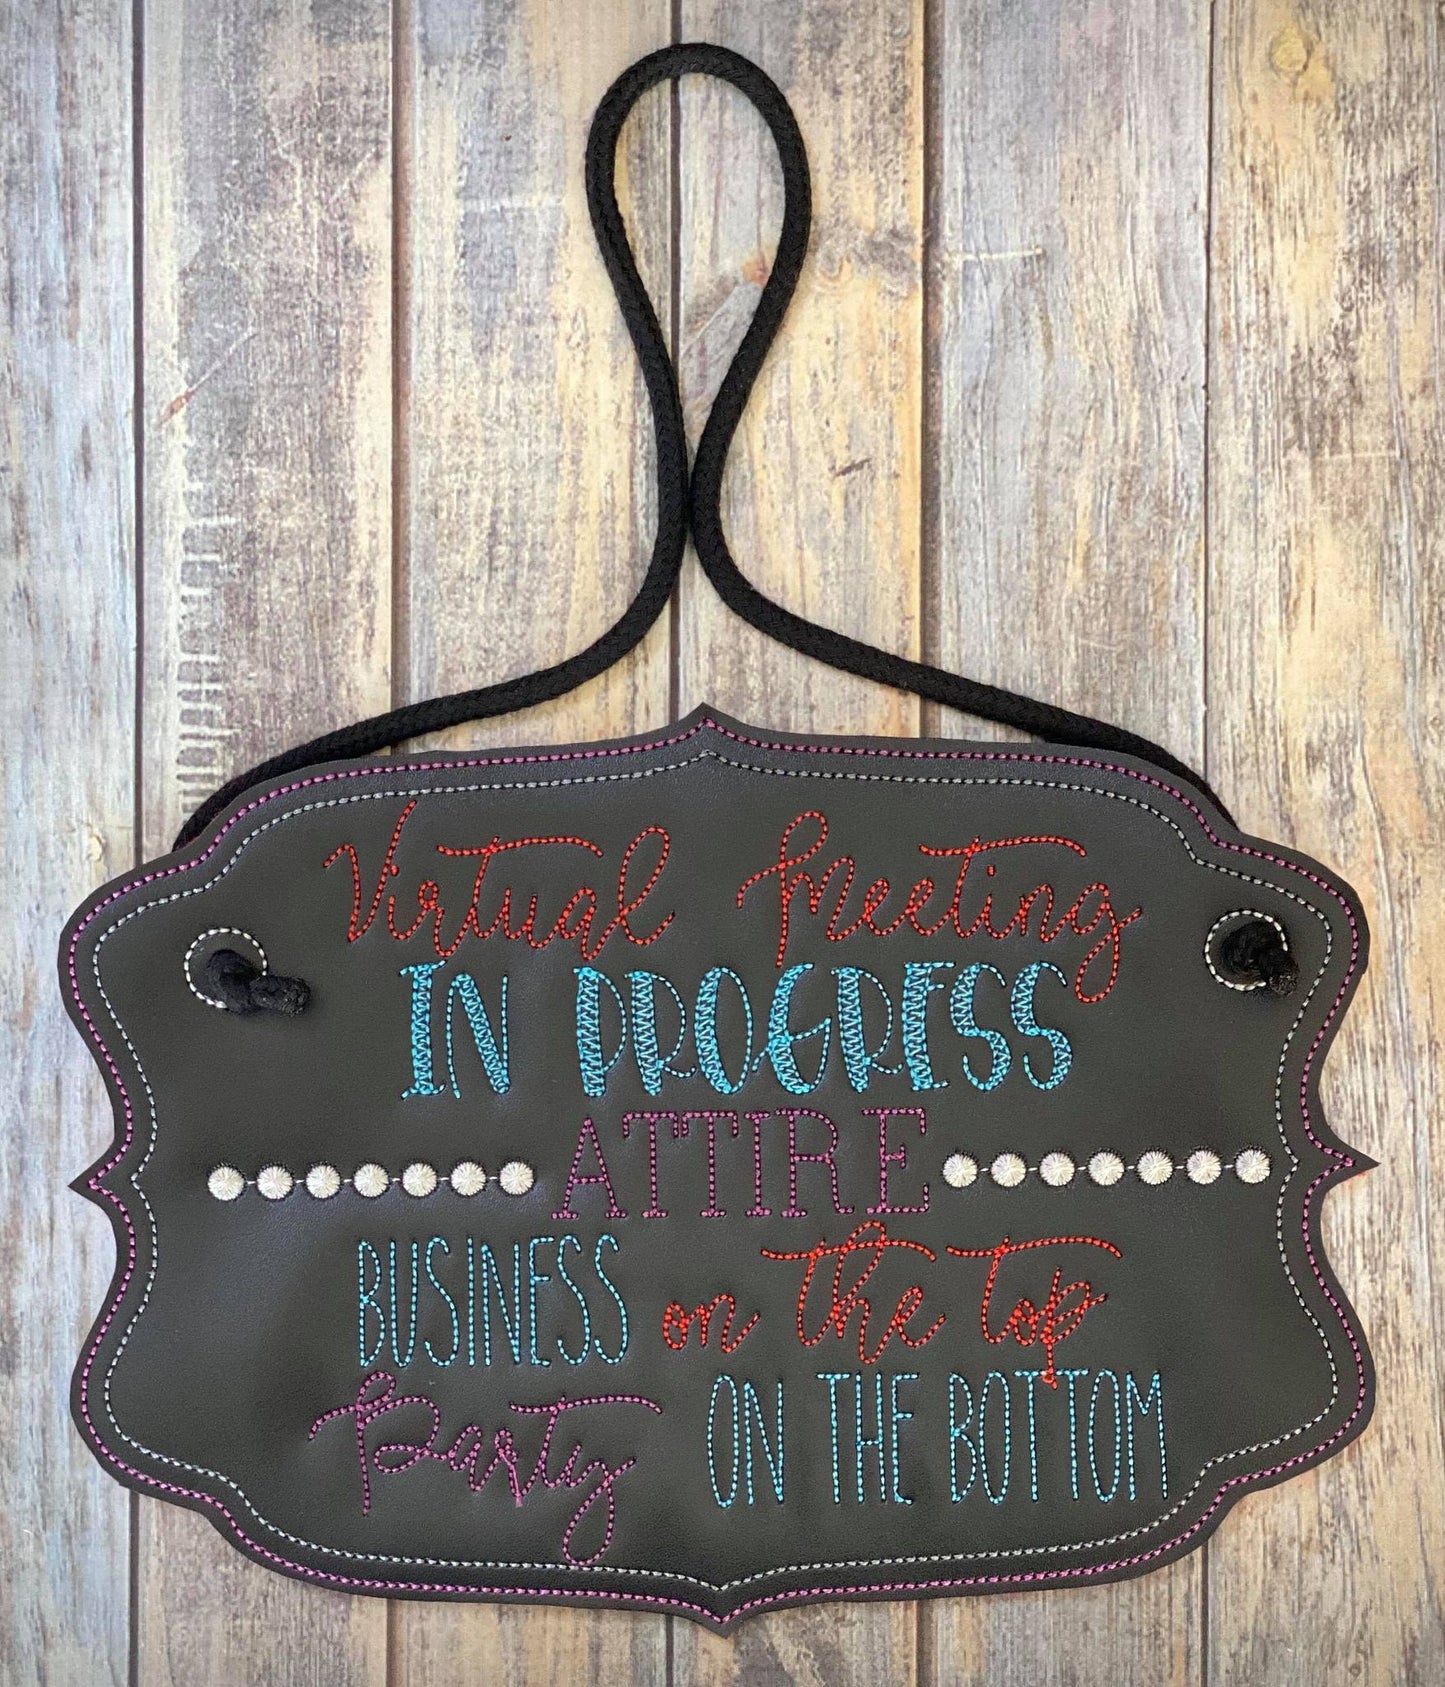 Virtual Meeting
IN PROGRESS
ATTIRE
BUSINESS on the top
Party ON THE BOTTOM